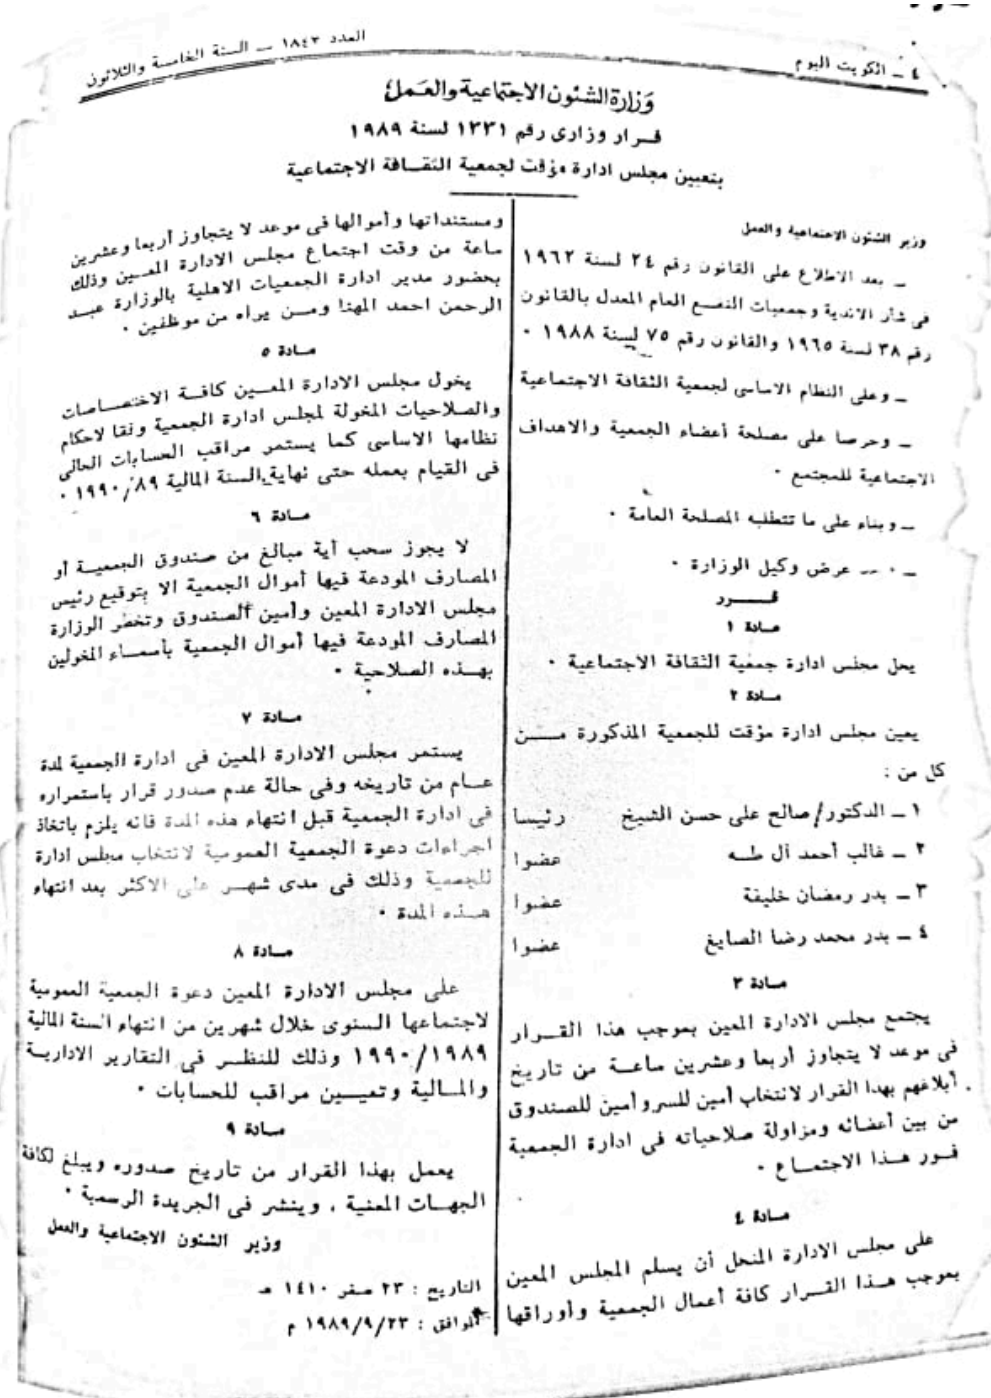 ٤ ــ الكويت اليوم
العدد ١٨٤٣ ــ السنة الخامسة والثلاثون
وزارة الشئون الاجتماعية والعمل
قرار وزارى رقم ١٣٣١ لسنة ١٩٨٩
بتعيين مجلس ادارة مؤقت لجمعية الثقافة الاجتماعية
وزير الشئون الاجتماعية والعمل
ــ بعد الاطلاع على القانون رقم ٢٤ لسنة ١٩٦٢
فى شأن الاندية وجمعيات النفع العام المعدل بالقانون
رقم ٣٨ لسنة ١٩٦٥ والقانون رقم ٧٥ لسنة ١٩٨٨ ٠
ــ وعلى النظام الاساسى لجمعية الثقافة الاجتماعية
ــ وحرصا على مصلحة أعضاء الجمعية والاهداف
الاجتماعية للمجتمع ٠
ــ وبناء على ما تتطلبه المصلحة العامة ٠
ــ ٠ ــ عرض وكيل الوزارة ٠
قـــرر
مادة ١
يحل مجلس ادارة جمعية الثقافة الاجتماعية ٠
مادة ٢
يعين مجلس ادارة مؤقت للجمعية المذكورة مـــن
كل من :
١ ــ الدكتور/صالح على حسن الشيخ رئيسا
٢ ــ غالب أحمد آل طـه عضوا
٣ ــ بدر رمضان خليفة عضوا
٤ ــ بدر محمد رضا الصايغ عضوا
مادة ٣
يجتمع مجلس الادارة المعين بموجب هذا القـــرار
فى موعد لا يتجاوز أربعا وعشرين ساعـة من تاريخ
أبلاغهم بهذا القرار لانتخاب أمين للسر وأمين للصندوق
من بين أعضائه ومزاولة صلاحياته فى ادارة الجمعية
فـور هـذا الاجتمـاع ٠
مـادة ٤
على مجلس الادارة المنحل أن يسلم المجلس المعين
بموجب هـذا القـــرار كافة أعمال الجمعية وأوراقها
ومستنداتها وأموالها فى موعد لا يتجاوز أربعا وعشرين
ساعة من وقت اجتماع مجلس الادارة المعـين وذلك
بحضور مدير ادارة الجمعيات الاهلية بالوزارة عبـد
الرحمن احمد المهنا ومـــن يراه من موظفين ٠
مـادة ٥
يخول مجلس الادارة المعـين كافـة الاختصـاصات
والصلاحيات المخولة لمجلس ادارة الجمعية وفقا لاحكام
نظامها الاساسى كما يستمر مراقب الحسابات الحالى
فى القيام بعمله حتى نهاية السنة المالية ١٩٩٠/٨٩ ٠
مـادة ٦
لا يجوز سحب أية مبالغ من صندوق الجمعيـة أو
المصارف المودعة فيها أموال الجمعية الا بتوقيع رئيس
مجلس الادارة المعين وأمين الصندوق وتخطر الوزارة
المصارف المودعة فيها أموال الجمعية بأسمـاء المخولين
بهـذه الصلاحية ٠
مـادة ٧
يستمر مجلس الادارة المعين فى ادارة الجمعية لمدة
عـام من تاريخه وفى حالة عدم صدور قرار باستمراره
فى ادارة الجمعية قبل انتهاء هذه المدة فانه يلزم باتخاذ
اجراءات دعوة الجمعية العمومية لانتخاب مجلس ادارة
للجمعية وذلك فى مدى شهـر على الاكثر بعد انتهاء
هـذه المدة ٠
مـادة ٨
على مجلس الادارة المعين دعوة الجمعية العمومية
لاجتماعها السنوى خلال شهرين من انتهاء السنة المالية
١٩٩٠/١٩٨٩ وذلك للنظـر فى التقارير الاداريـة
والمـالية وتعيـين مراقب للحسابات ٠
مـادة ٩
يعمل بهذا القرار من تاريخ صدوره ويبلغ لكافة
الجهـات المعنية ، وينشر فى الجريدة الرسمية ٠
وزير الشئون الاجتماعية والعمل
التاريخ : ٢٣ صفر ١٤١٠ هـ
الموافق : ١٩٨٩/٩/٢٣ م